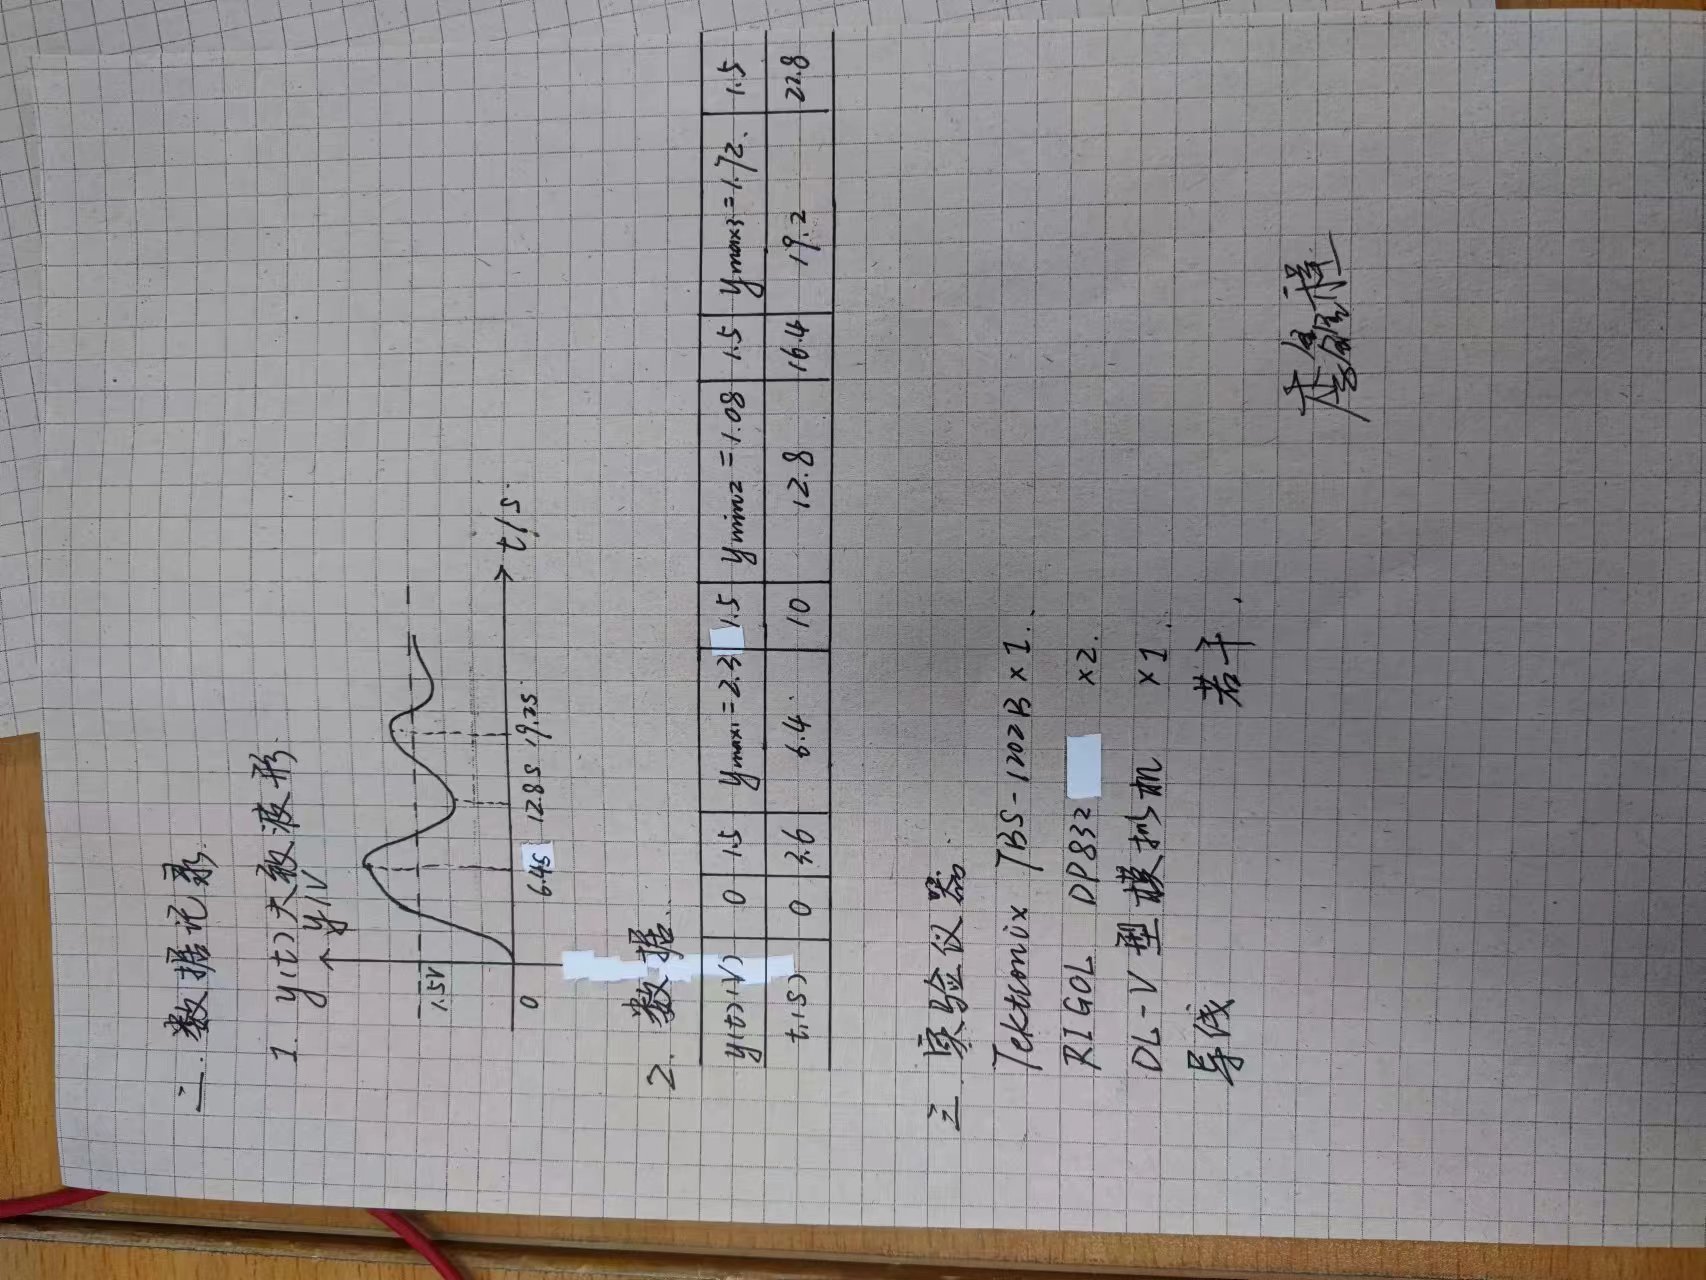 二. 数据记录.
1. y(t)大致波形.
y/V
1.5V
0 6.4s 12.8s 19.2s t/s
2. 数据.
y(t)(V) 0 1.5 ymax1=2.3 1.5 ymin2=1.08 1.5 ymax3=1.72. 1.5
t(s) 0 3.6 6.4 10 12.8 16.4 19.2 22.8
三. 实验仪器.
Tektronix TBS-1102B ×1.
RIGOL DP832 ×2.
DL-V型模拟机 ×1
导线 若干.